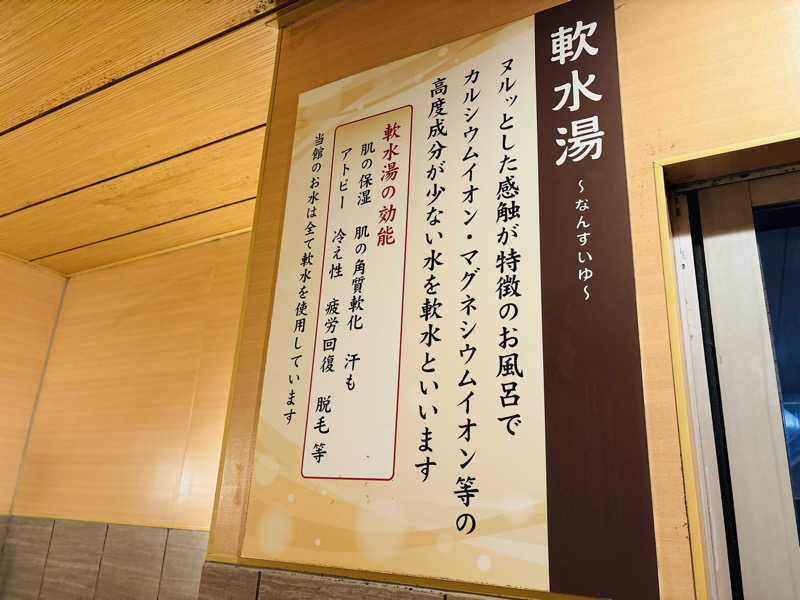 軟水湯
～なんすいゆ～
ヌルッとした感触が特徴のお風呂で
カルシウムイオン・マグネシウムイオン等の
高度成分が少ない水を軟水といいます
軟水湯の効能
肌の保湿 肌の角質軟化 汗も
アトピー 冷え性 疲労回復 脱毛 等
当館のお水は全て軟水を使用しています